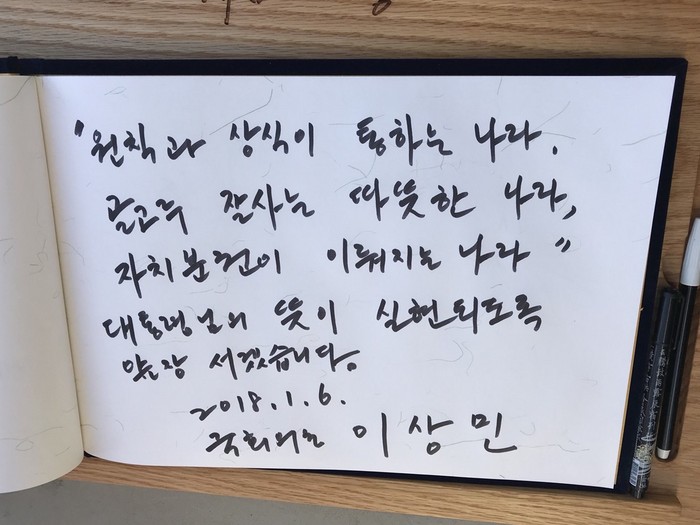 "원칙과 상식이 통하는 나라,
골고루 잘사는 따뜻한 나라,
자치분권이 이뤄지는 나라"
대통령님의 뜻이 실현되도록
앞장 서겠습니다.
2018.1.6.
국회의원 이상민